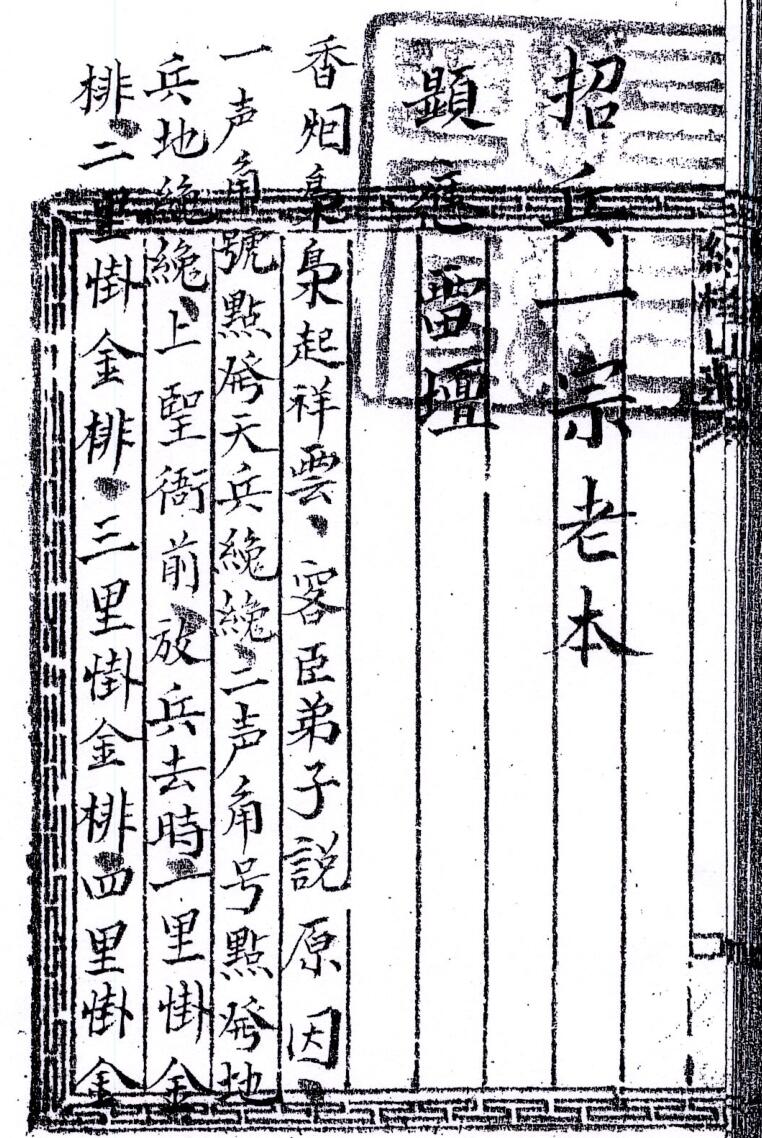 招兵一宗老本
顯應雷壇
香烟梟梟起祥雲、客臣弟子説原因、
一声角號點发天兵纔纔、二声角号點发地
兵地纔纔、上聖衙前放兵去時、一里掛金
榜、二里掛金榜、三里掛金榜、四里掛金